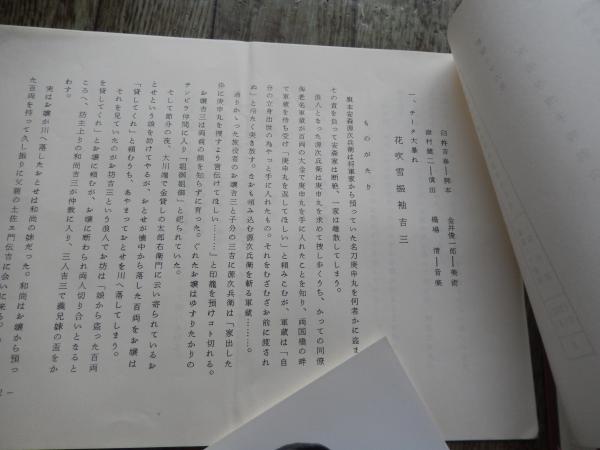 一、チータ大暴れ
花吹雪振袖吉三
臼井吉春―脚本
金井俊一郎―美術
演出
音楽
ものがたり
旗本安森源次兵衛は将軍家から預っていた名刀庚申丸を何者かに盗ま
その責を負って安森家は断絶、一家は離散してしまう。
浪人となった源次兵衛は庚申丸を求めて捜し歩くうち、かっての同僚
海老名軍蔵が百両の大金で庚申丸を手に入れたことを知り、両国橋の畔
で軍蔵を待ち受け「庚申丸を返してほしい」と頼みこむが、軍蔵は「自
分の立身出世の為やっと手に入れたもの。それをむざむざお前に渡され
ぬ」と冷たく突き放す。なおも頼み込む源次兵衛を斬る軍蔵………。
通りかゝった旅役者のお嬢吉三と子分の三吉に源次兵衛は「家出した
に庚申丸を捜すよう言伝てほしい………」と印籠を預けコト切れる。
お嬢吉三は両親の顔を知らずに育った。ぐれたお嬢はゆすりたかりの
チンピラ仲間に入り「姐御姐御」と祀られていた。
そして節分の夜、大川端で金貸しの太郎右衛門に云い寄られているお
とせという娘を助けてやるが、おとせが懐中から落した百両をお嬢は
「貸してくれ」と頼むうち、あやまっておとせを川へ落してしまう。
それを見ていたのがお坊吉三という浪人でお坊は「娘から盗った百両
を貸してくれ」とお嬢に頼むが、お嬢に断わられ両人切り合いとなると
ころへ、坊主上りの和尚吉三が仲裁に入り、三人吉三で義兄妹の盃をか
わす。
実はお嬢が川へ落したおとせは和尚の妹だった。和尚はお嬢から預っ
た百両を持って久し振りに父親の土佐ェ門伝吉に会いに来